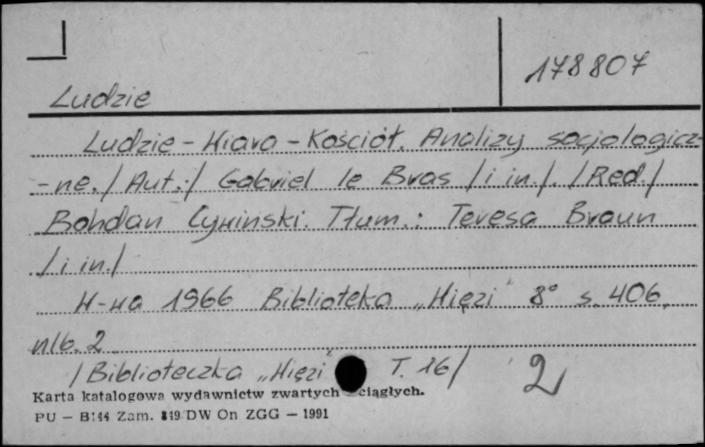 178807
Ludzie
Ludzie - Wiara - Kościół. Analizy socjologicz-
-ne. /Aut.:/ Gabriel le Bras /i in./. /Red./
Bohdan Cywiński. Tłum.: Teresa Braun
/i in./
W-wa 1966 Biblioteka „Więzi" 8° s. 406,
nlb. 2
/Biblioteczka „Więzi" T. 16/ 2
Karta katalogowa wydawnictw zwartych ciągłych.
PU - B144 Zam. 819/DW On ZGG - 1991